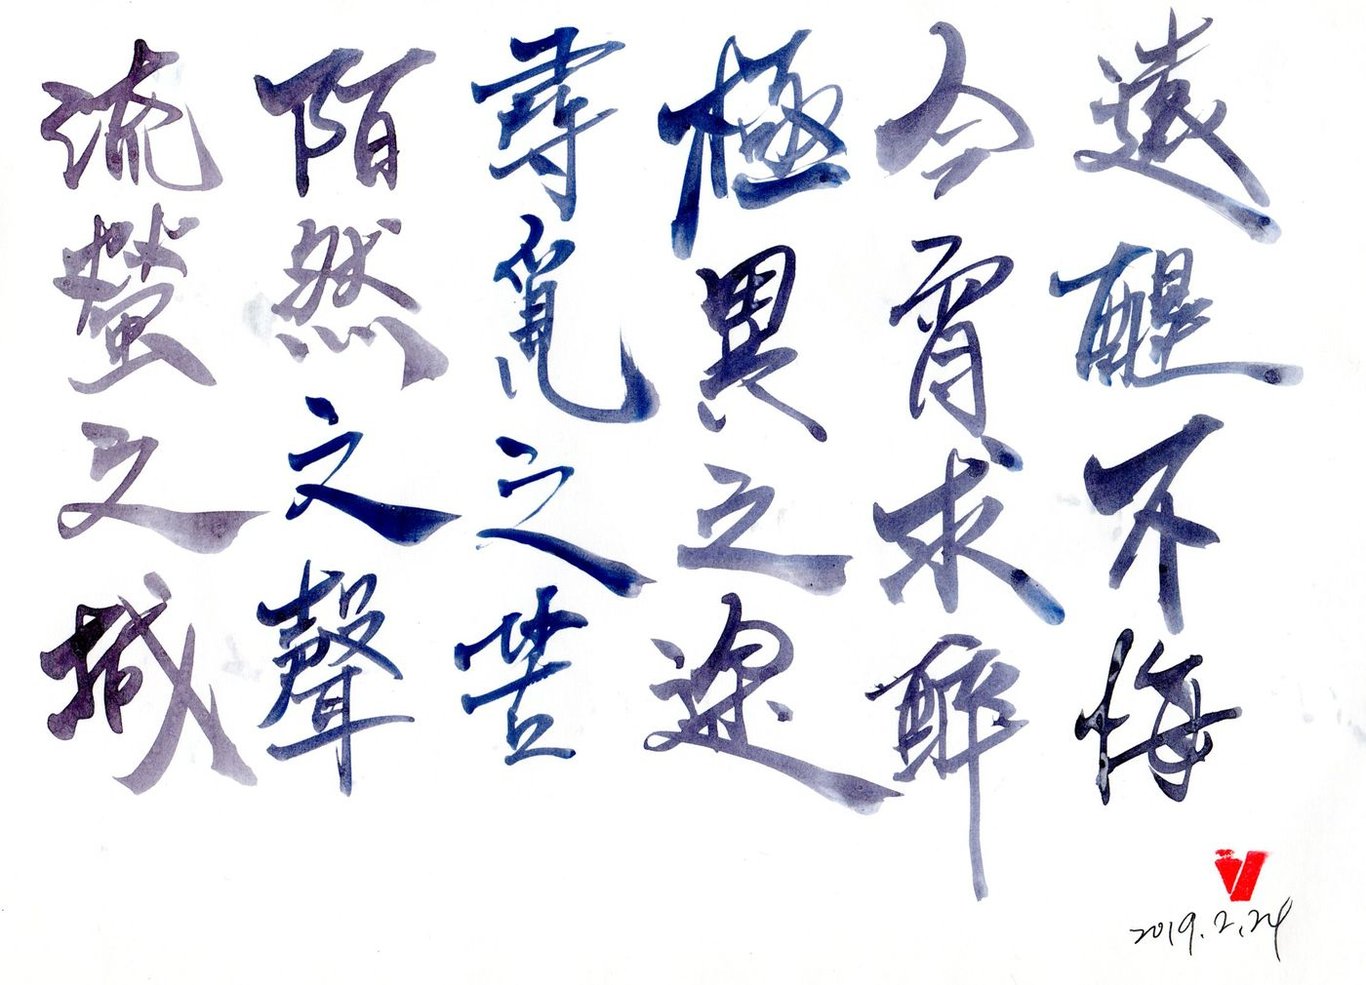 流螢之
陌然之聲
尋覓之
極異之途
今宵求醉
遠醒不悔
2019.2.24